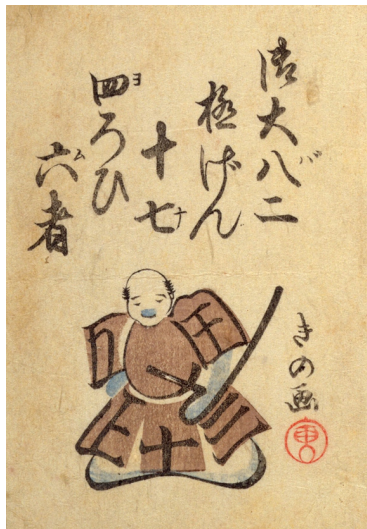 大八二
極げん
十七
四ろひ
六者
きの画